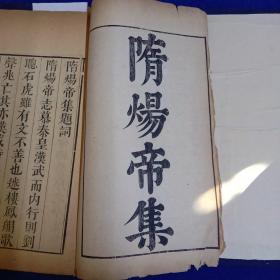 隋煬帝集
隋煬帝集題詞
隋煬帝志慕秦皇漢武而內行則劉
聰石虎雖有文不善也迷樓鳳舸歌
聲兆亡其亦